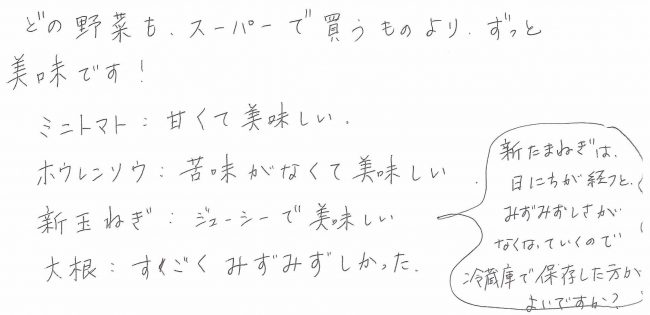 どの野菜も、スーパーで買うものより、ずっと
美味です！
ミニトマト：甘くて美味しい。
ホウレンソウ：苦味がなくて美味しい
新玉ねぎ：ジューシーで美味しい
大根：すごくみずみずしかった。
新たまねぎは、
日にちが経つと、
みずみずしさが
なくなっていくので
冷蔵庫で保存した方が
よいですか？